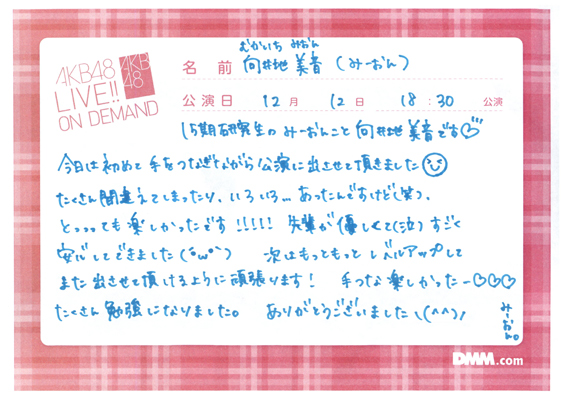 AKB48
LIVE!!
ON DEMAND
AKB
48
むかいち みおん
名前 向井地 美音 (みーおん)
公演日 12月 12日 18:30 公演
15期研究生の みーおんこと 向井地 美音です♡
今日は初めて 手をつなぎながら公演に出させて頂きました
たくさん間違えてしまったり、いろいろ…あったんですけど(笑)、
とっっっても楽しかったです!!!!! 先輩が優しくて(泣)すごく
安心してできました(*°ω°*) 次はもっともっと レベルアップして
また出させて頂けるように頑張ります! 手つな楽しかったー♡♡♡
たくさん勉強になりました。 ありがとうございました\(^^)/
みーおん。
DMM.com